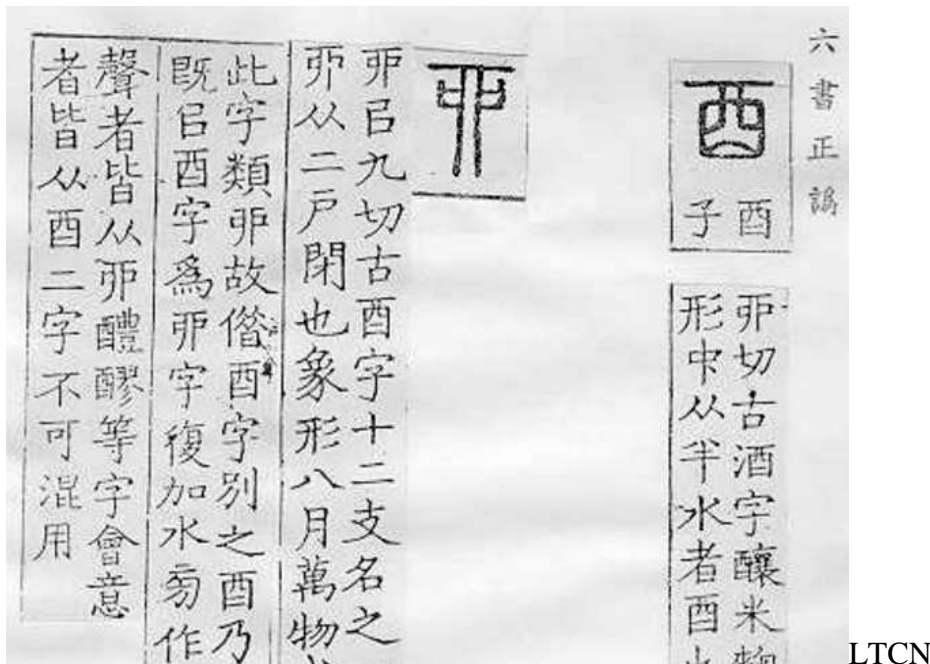 六書正譌
酉
酉
子
丣切古酒字釀米
形中从半水者酉
丣
丣㠯九切古酉字十二支名之
丣从二戶閉也象形八月萬物
此字類丣故偺酉字別之酉乃
既㠯酉字爲丣字復加水㫄作
聲者皆从丣醴醪等字會意
者皆从酉二字不可混用
LTCN